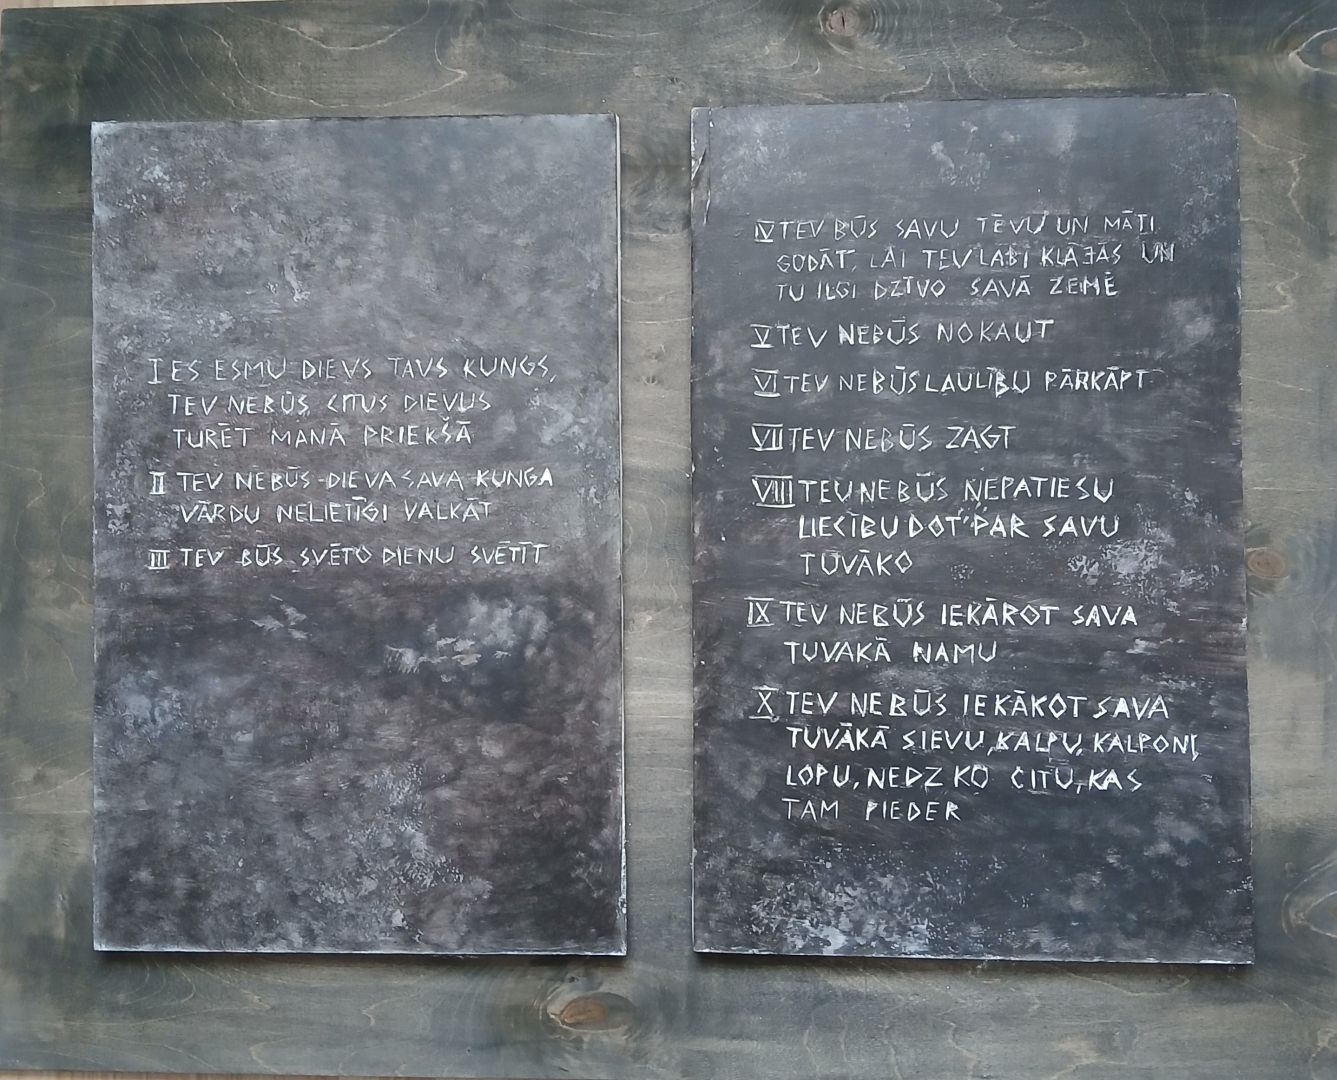 I ES ESMU DIEVS TAVS KUNGS,
TEV NEBŪS CITUS DIEVUS
TURĒT MANĀ PRIEKŠĀ
II TEV NEBŪS DIEVA SAVA KUNGA
VĀRDU NELIETĪGI VALKĀT
III TEV BŪS SVĒTO DIENU SVĒTĪT
IV TEV BŪS SAVU TĒVU UN MĀTI
GODĀT, LAI TEV LABI KLĀJĀS UN
TU ILGI DZĪVO SAVĀ ZEMĒ
V TEV NEBŪS NOKAUT
VI TEV NEBŪS LAULĪBU PĀRKĀPT
VII TEV NEBŪS ZAGT
VIII TEV NEBŪS NEPATIESU
LIECĪBU DOT PAR SAVU
TUVĀKO
IX TEV NEBŪS IEKĀROT SAVA
TUVAKĀ NAMU
X TEV NEBŪS IEKĀKOT SAVA
TUVĀKĀ SIEVU, KALPU, KALPONI,
LOPU, NEDZ KO CITU, KAS
TAM PIEDER